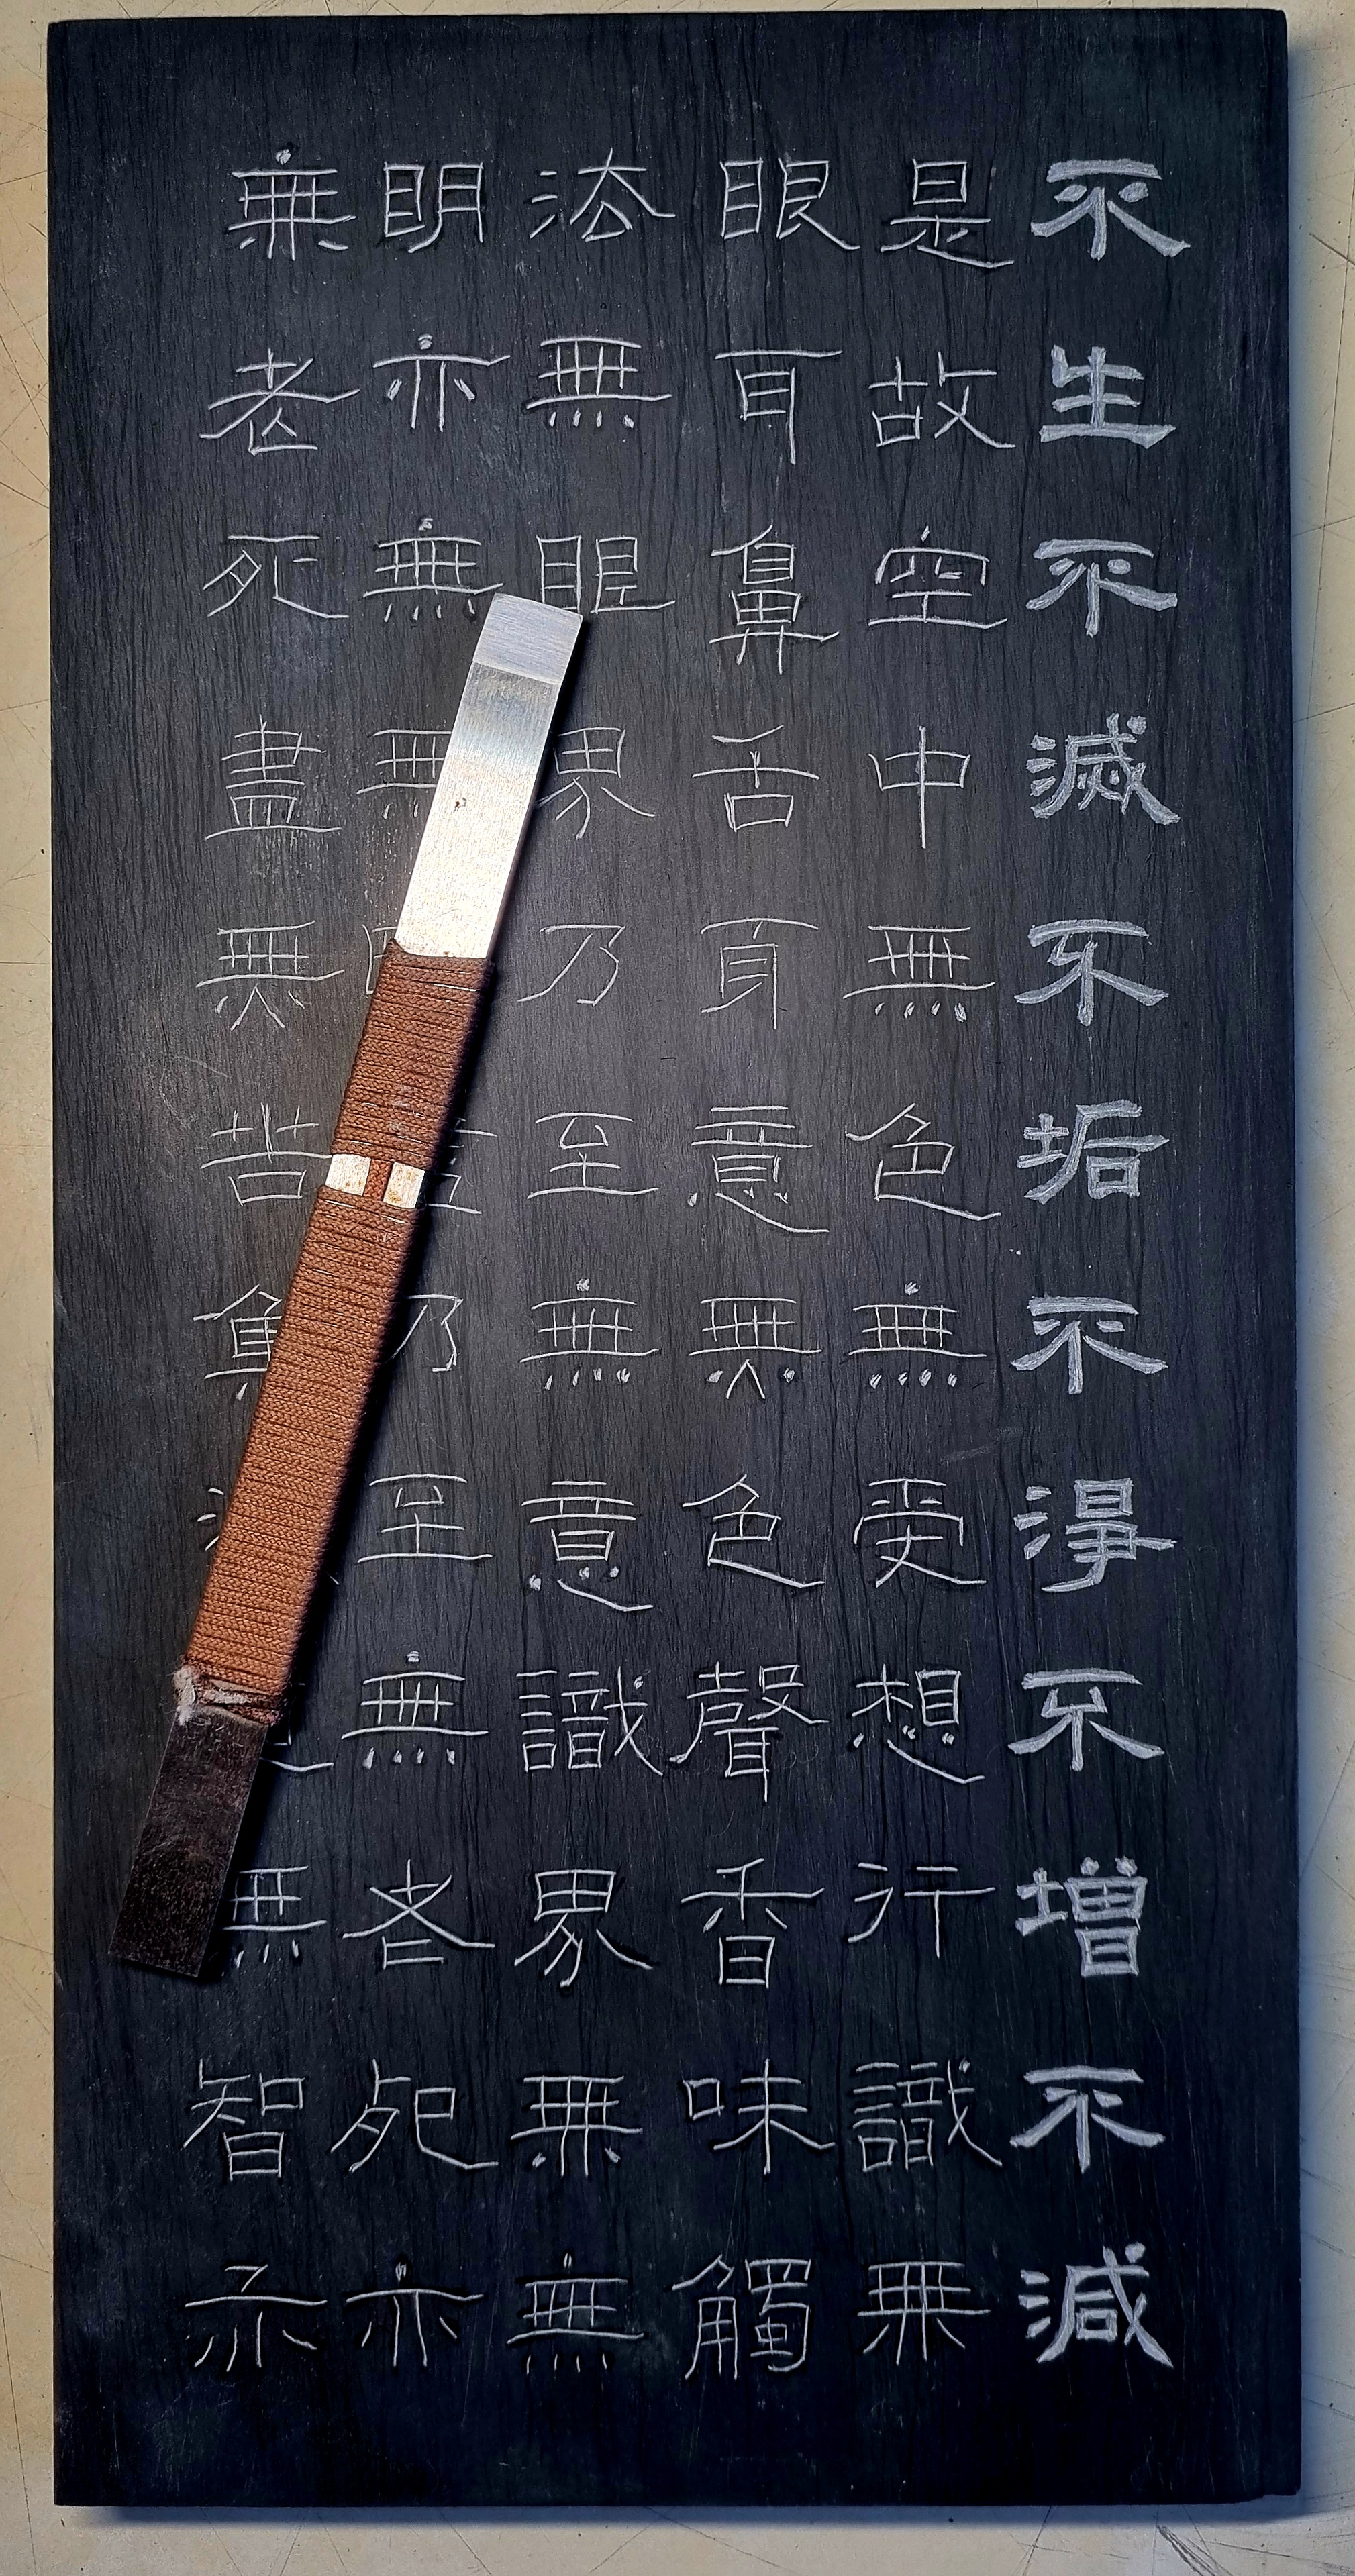 不生不滅不垢不淨不增不減
是故空中無色無受想行識無
眼耳鼻舌身意無色聲香味觸
法無眼界乃至無意識界無無
明亦無無乃至無老死亦
無老死盡無苦集無智亦